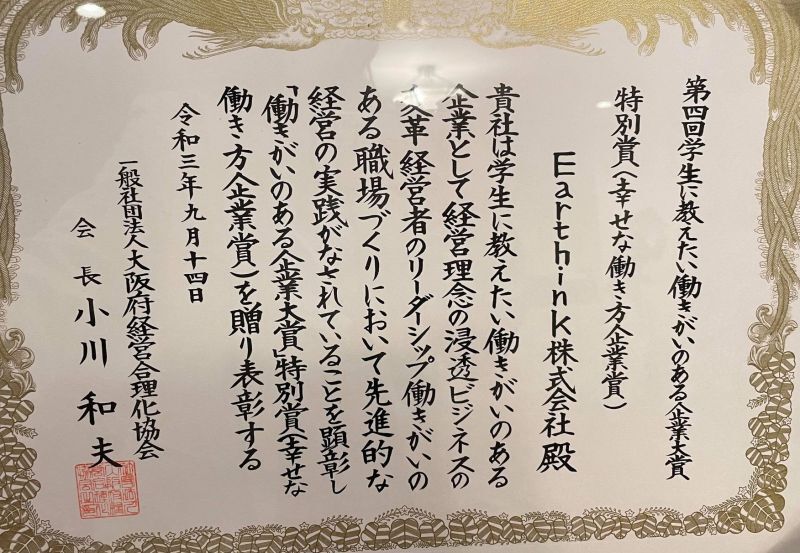 第四回学生に教えたい働きがいのある企業大賞
特別賞(幸せな働き方企業賞)
Earthink株式会社殿
貴社は学生に教えたい働きがいのある
企業として経営理念の浸透ビジネスの
変革経営者のリーダーシップ働きがいの
ある職場づくりにおいて先進的な
経営の実践がなされていることを顕彰し
「働きがいのある企業大賞」特別賞(幸せな
働き方企業賞)を贈り表彰する
令和三年九月十四日
一般社団法人大阪府経営合理化協会
会長小川和夫